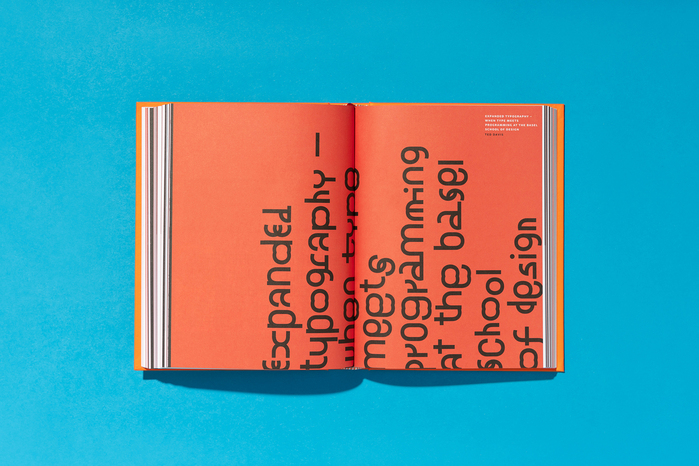 expanded
typography —
when type
meets
programming
at the basel
school
of design
EXPANDED TYPOGRAPHY –
WHEN TYPE MEETS
PROGRAMMING AT THE BASEL
SCHOOL OF DESIGN
TED DAVIS